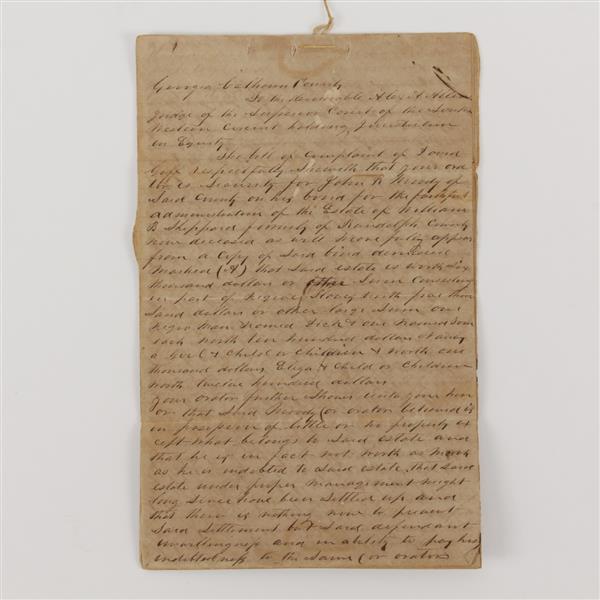 Georgia Calhoun County
To the Honorable Alex A Allen
Judge of the Superior Court of the South
Western Circuit holding Jurisdiction
in Equity
The bill of Complaint of
respectfully Sheweth that your ora
tor is Security for John R Moody of
Said County on his bond for the faithful
administration of the Estate of William
B Sheppard formerly of Randolph County
now deceased as will more fully appear
from a Copy of Said bond
Marked (A) that Said estate is worth Six
thousand dollars or other Sum Consisting
in part of Negroes Slaves worth
Sand dollars or other large Sum one
Negro Man Named Dick & one Named
each worth ten hundred dollars
a Girl & Child or Children & worth one
thousand dollars Eliza & Child or Children
worth twelve hundred dollars
your orator further Shows unto your hon
or that Said Moody (or orator
in possession of little or no property ex
cept what belongs to Said estate and
that he is in fact not worth as much
as he is indebted to Said estate that Said
estate under proper management might
long Since have been Settled up and
that there is nothing now to prevent
Said Settlement but Said defendant
unwillingness and inability to pay his
indebtedness to the Same (or orator